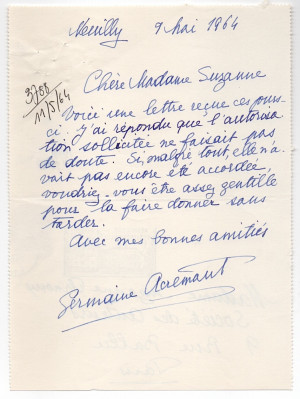 Neuilly 9 mai 1964
3788
11/5/64
Chère Madame Suzanne
Voici une lettre reçue ces jours-
ci. J'ai répondu que l'autorisa
tion sollicitée ne faisait pas
de doute. Si, malgré tout, elle n'a-
vait pas encore été accordée,
voudriez-vous être assez gentille
pour la faire donner sans
tarder.
Avec mes bonnes amitiés
Germaine Acremant